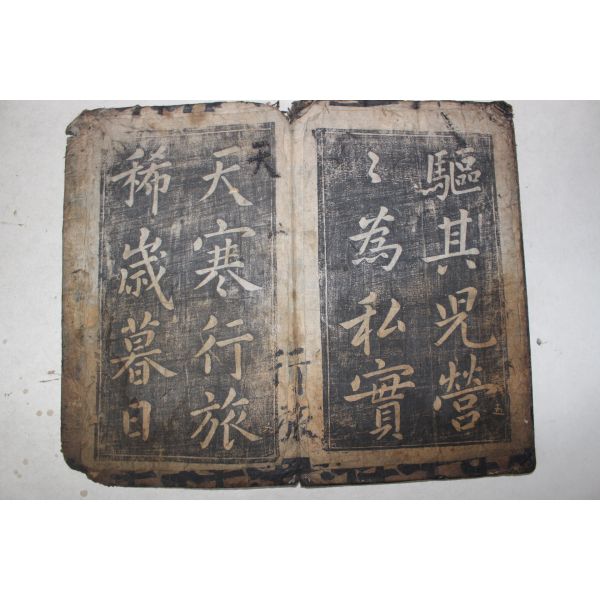 驅其兒營
〻為私實
五
天
行旅
天寒行旅
稀歲暮日